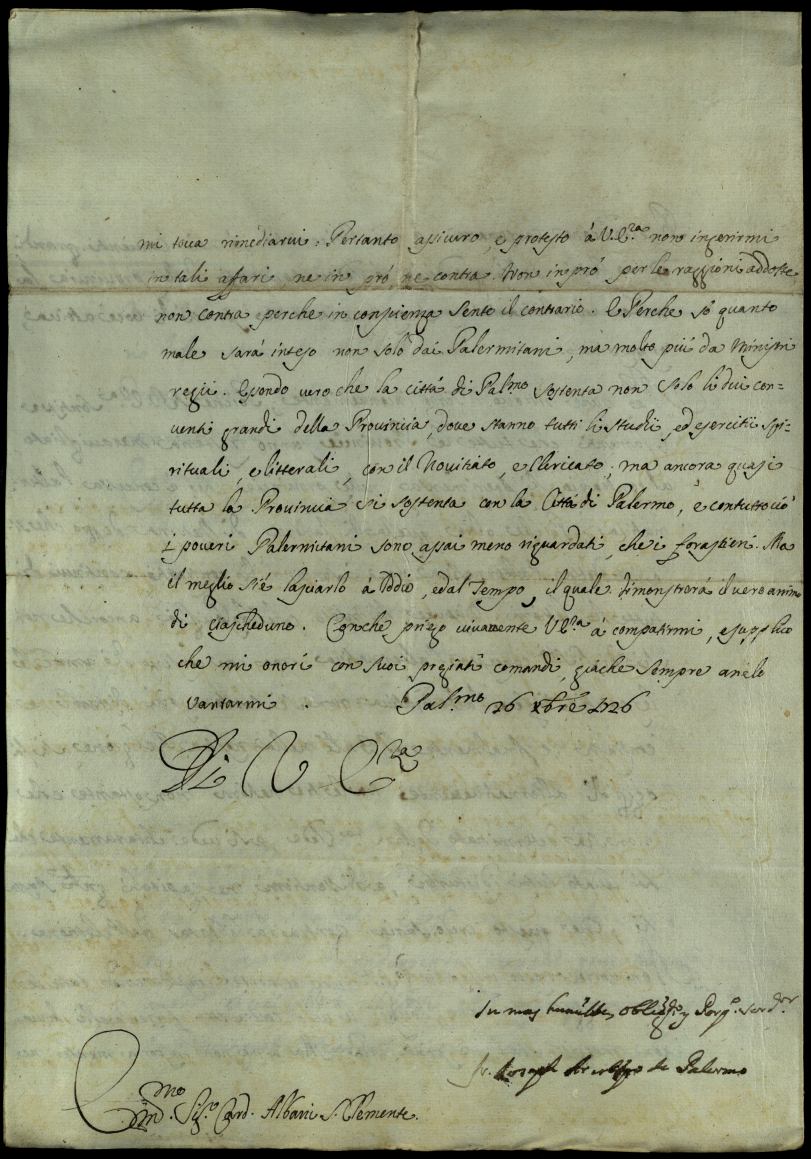 mi toca rimediarvi. Pertanto assicuro, e protesto á V. E.ᶻᵃ non ingerirmi
in tali affari ne in pró ne contra. Non in pró per le raggioni addotte
non contra perche in conscienza sento il contrario. E Perche só quanto
male sará inteso non solo dai Palermitani, ma molto piú da Ministri
regii. Essendo vero che la cittá di Pal.ᵐᵒ sostenta non solo li dui con=
venti grandi della Provincia, dove stanno tutti li studii, ed esercitii spi-
rituali, e litterali, con il Novitiato, e Clericato; ma ancora quasi
tutta la Provincia si sostenta con la Cittá di Palermo, e contuttoció
i poveri Palermitani sono assai meno riguardati, che i forastieri. Ma
il meglio si é lasciarlo á Iddio, ed al Tempo, il quale dimonstrerá il vero animo
di ciascheduno. Con che priego vivamente V. E.ᶻᵃ á compatirmi, e supplico
che mi onori con suoi pregiati comandi, giache sempre anelo
vantarmi. Pal.ᵐᵒ 26 Xbre 1726
Di V. E.ᶻᵃ
Su mas humilde, obligᵈᵒ y serᵈᵒʳ
fr. Joseph Arcobpo de Palermo
Em.ᵐᵒ Sig.ʳ Card. Albani S. Clemente.